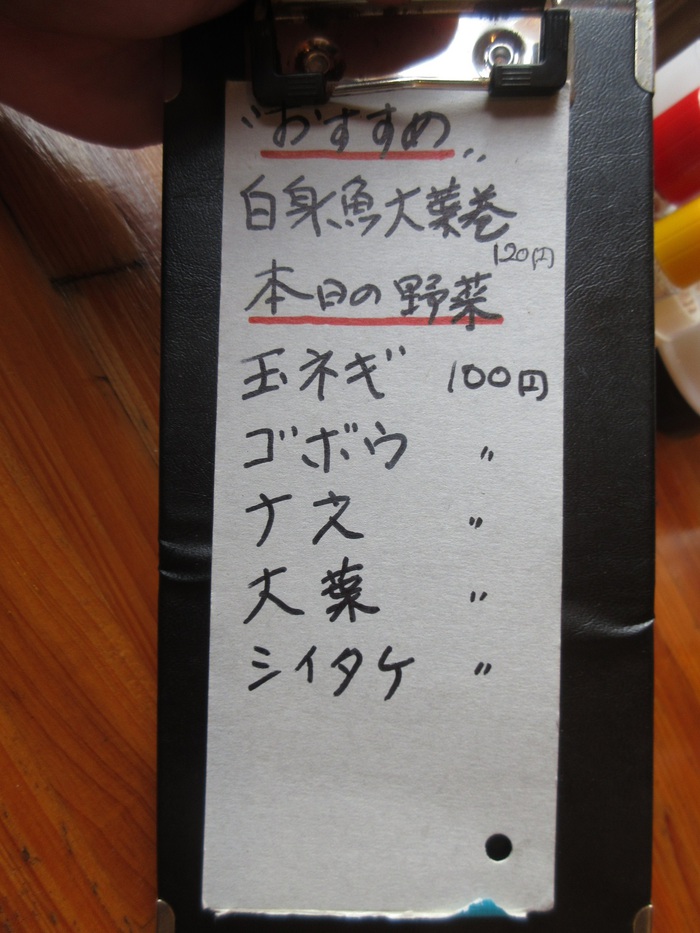 〝おすすめ〟
白身魚大葉巻
120円
本日の野菜
玉ネギ 100円
ゴボウ 〃
ナス 〃
大葉 〃
シイタケ 〃